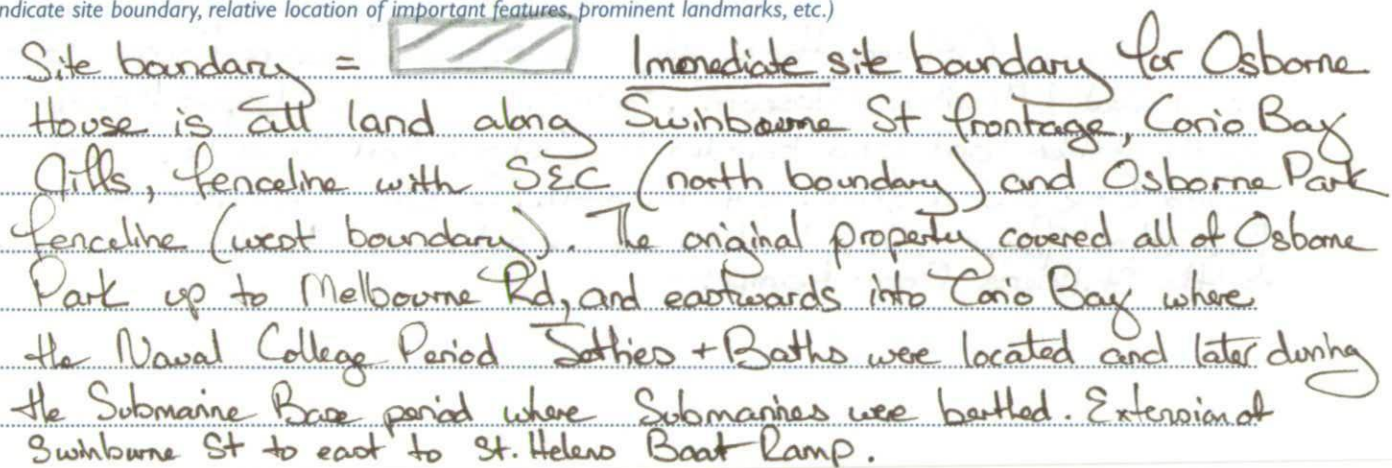 ndicate site boundary, relative location of important features, prominent landmarks, etc.)
Site boundary = Immediate site boundary for Osborne
House is all land along Swinbourne St frontage, Corio Bay
Cliffs, fenceline with SEC (north boundary) and Osborne Park
fenceline (west boundary). The original property covered all of Osborne
Park up to Melbourne Rd, and eastwards into Corio Bay where
the Naval College Period Jetties + Baths were located and later during
the Submarine Base period where Submarines were berthed. Extension of
Swinburne St to east to St. Helens Boat Ramp.